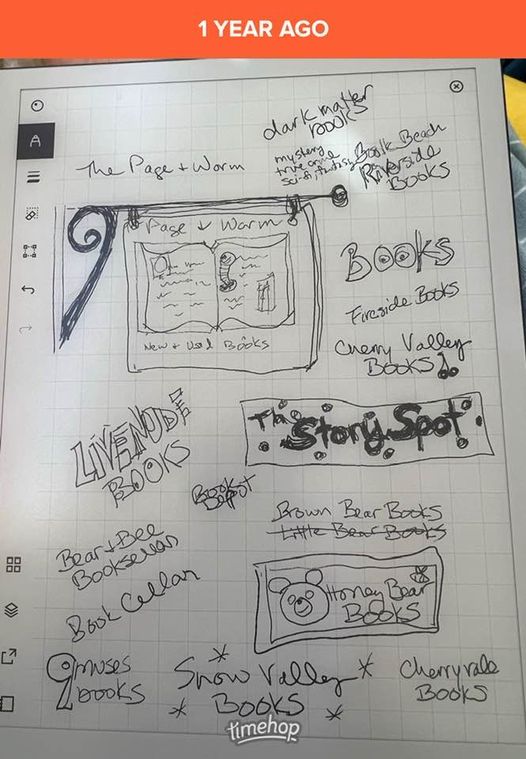 1 YEAR AGO
dark matter
books
mystery
true crime
sci-fi, fantasy
Beach
Riverside
Books
The Page + Worm
Page + Worm
New + Used Books
BOOKS
Fireside Books
Cherry Valley
Books
LIVENODE
BOOKS
The
Story Spot
Book
Depot
Brown Bear Books
Little Bear Books
Bear + Bee
Booksellers
Book Cellar
Honey Bear
BOOKS
9 muses
books
Snow Valley
BOOKS
Cherryvale
Books
timehop